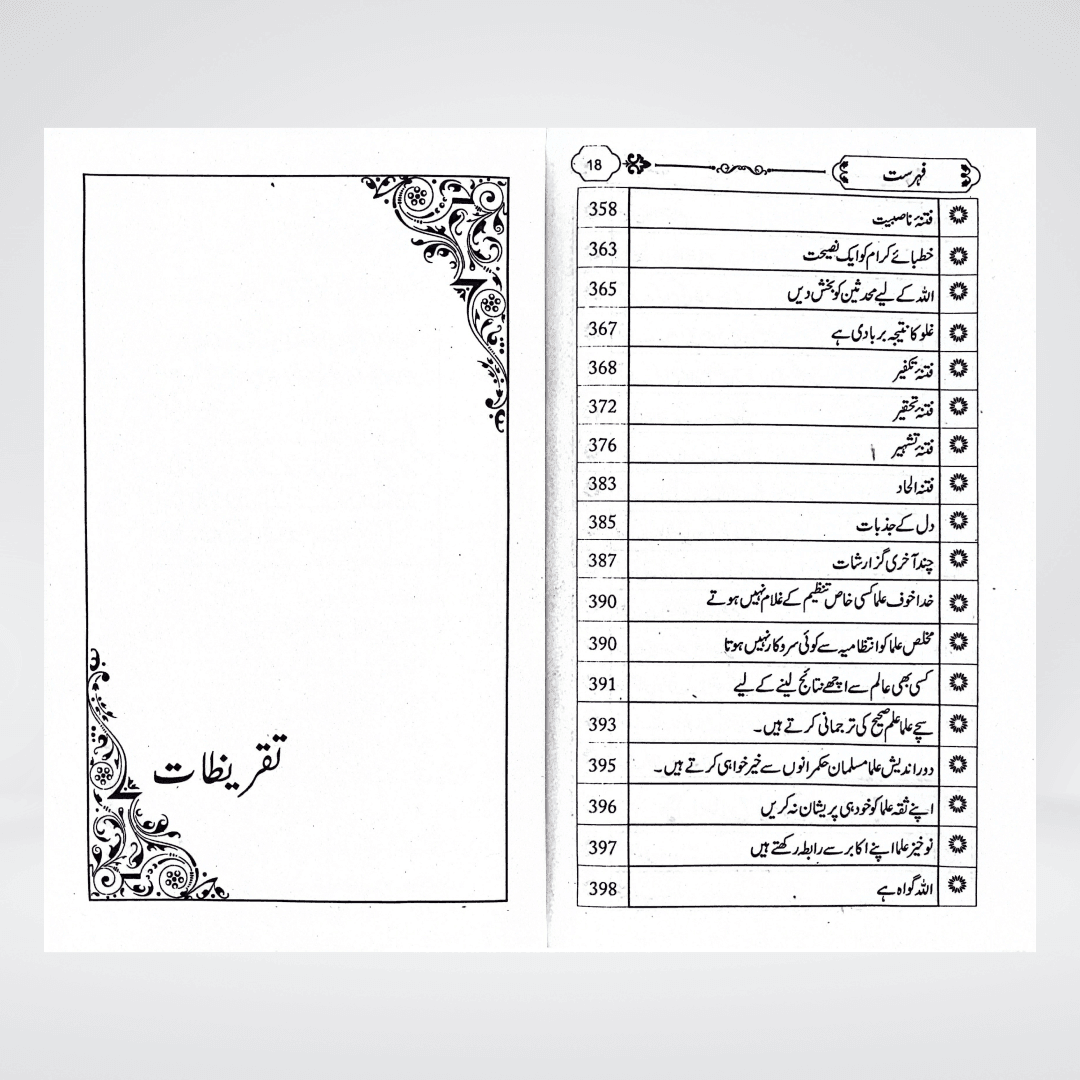 فہرست 18
فتنۂ ناصبیت 358
خطبائے کرام کو ایک نصیحت 363
اللہ کے لیے محدثین کو بخش دیں 365
غلو کا نتیجہ بربادی ہے 367
فتنۂ تکفیر 368
فتنۂ تحقیر 372
فتنۂ تشہیر 376
فتنہ الحاد 383
دل کے جذبات 385
چند آخری گزارشات 387
خدا خوف علما کسی خاص تنظیم کے غلام نہیں ہوتے 390
مخلص علما کو انتظامیہ سے کوئی سروکار نہیں ہوتا 390
کسی بھی عالم سے اچھے نتائج لینے کے لیے 391
سچے علما علم صحیح کی ترجمانی کرتے ہیں۔ 393
دور اندیش علما مسلمان حکمرانوں سے خیر خواہی کرتے ہیں۔ 395
اپنے ثقہ علما کو خود ہی پریشان نہ کریں 396
نوخیز علما اپنے اکابر سے رابطہ رکھتے ہیں 397
اللہ گواہ ہے 398
تقریظات